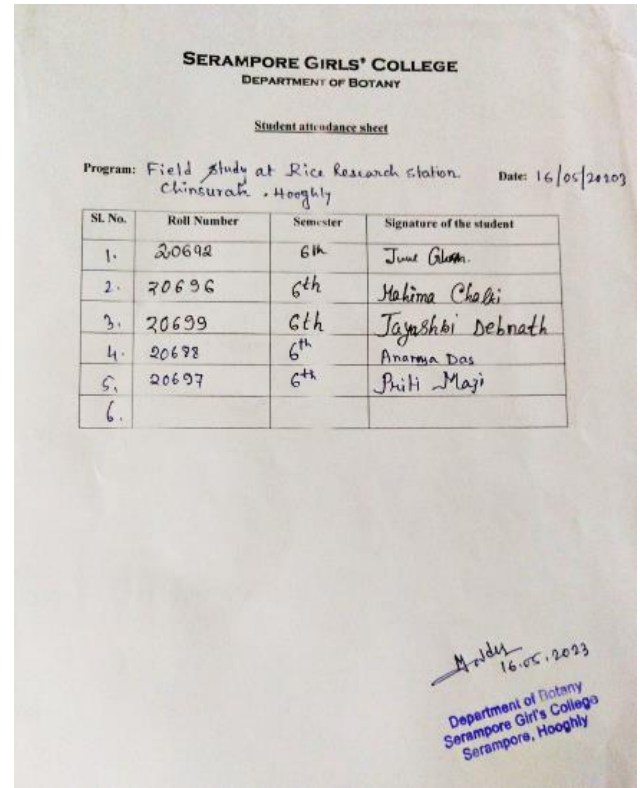 SERAMPORE GIRLS' COLLEGE
DEPARTMENT OF BOTANY
Student attendance sheet
Program: Field Study at Rice Research Station. Date: 16/05/20203
Chinsurah. Hooghly
SL No. Roll Number Semester Signature of the student
1. 20692 6th June
2. 20696 6th Mahima
3. 20699 6th Jayashbi Debnath
4. 20688 6th Ananya Das
5. 20697 6th Priti Maji
6.
16.05.2023
Department of Botany
Serampore Girl's College
Serampore, Hooghly